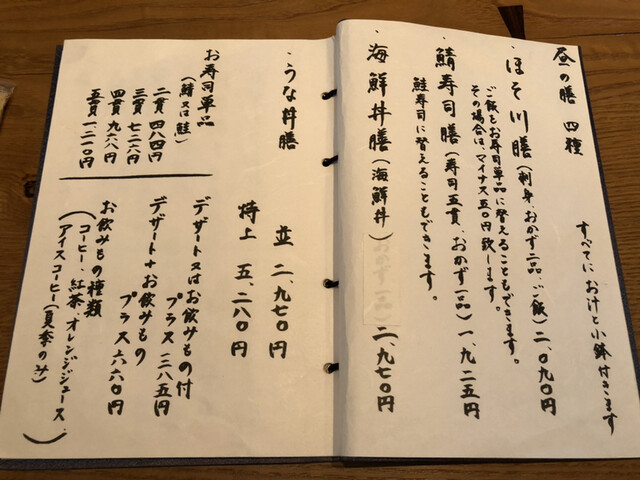 昼の膳 四種
すべてにお汁と小鉢付きます
・ほそ川膳(刺身、おかず二品、ご飯)二、〇九〇円
ご飯をお寿司単品に替えることもできます。
その場合は、マイナス五〇円致します。
・鯖寿司膳(寿司五貫、おかず一品)一、九二五円
鮭寿司に替えることもできます。
・海鮮丼膳(海鮮丼)おかず一品)二、九七〇円
・うな丼膳
並 二、九七〇円
特上 五、二八〇円
お寿司単品
(鯖又は鮭)
二貫 四八四円
三貫 七二六円
四貫 九六八円
五貫 一、二一〇円
デザート又はお飲みもの付
プラス 三八五円
デザート+お飲みもの
プラス 六六〇円
お飲みもの種類
(コーヒー、紅茶、オレンジジュース、
アイスコーヒー(夏季のみ))